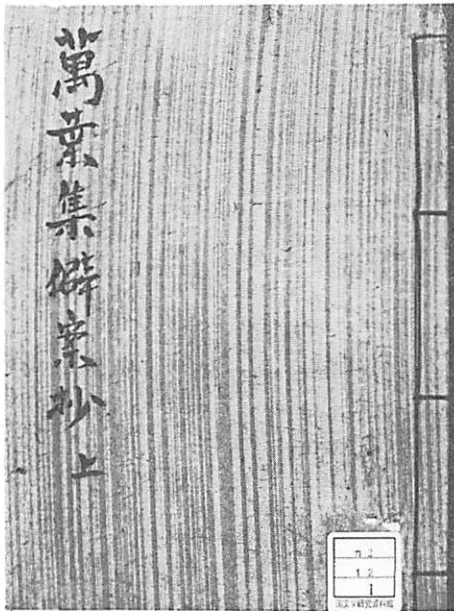 萬葉集僻案抄 上
1 2
1
国文学研究資料館